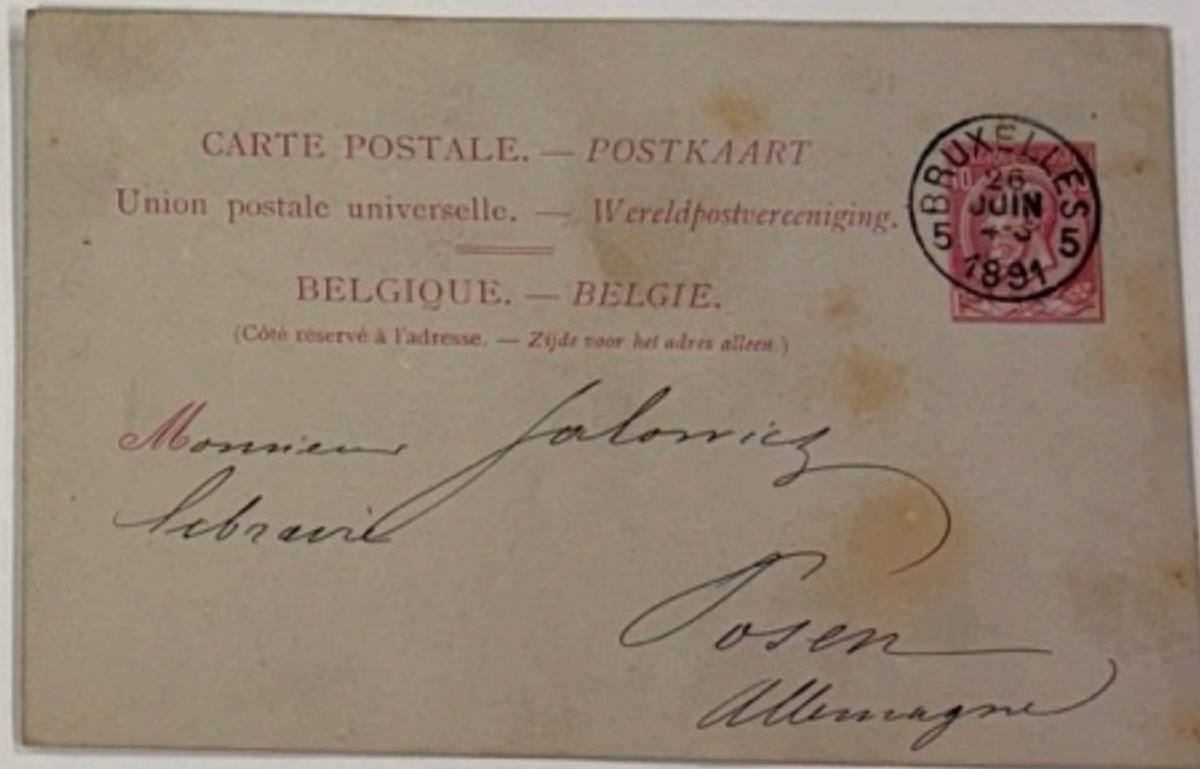 CARTE POSTALE. — POSTKAART
Union postale universelle. — Wereldpostvereeniging.
BELGIQUE. — BELGIE.
(Côté réservé à l'adresse. — Zijde voor het adres alleen.)
BRUXELLES
26
JUIN
5 5
1891
Monsieur Jolowicz
libraire
Posen
Allemagne